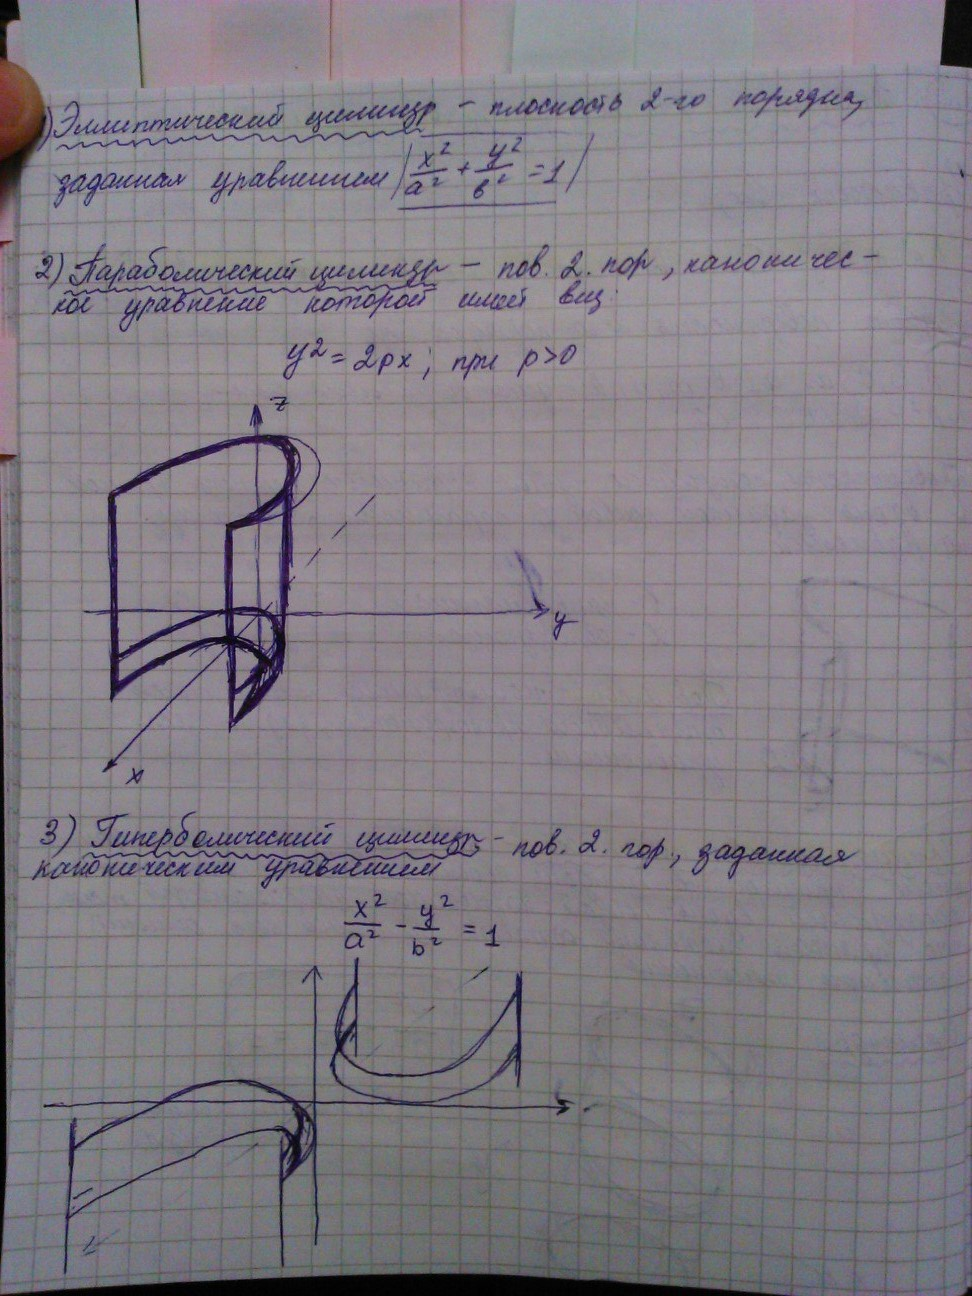 1) Эллиптический цилиндр – плоскость 2-го порядка,
заданная уравнением | x²/a² + y²/в² = 1 |
2) Параболический цилиндр – пов. 2. пор, каноничес-
кое уравнение которой имеет вид
y² = 2px ; при p>0
z
y
x
3) Гиперболический цилиндр – пов. 2. пор., заданная
каноническим уравнением
x²/a² - y²/b² = 1